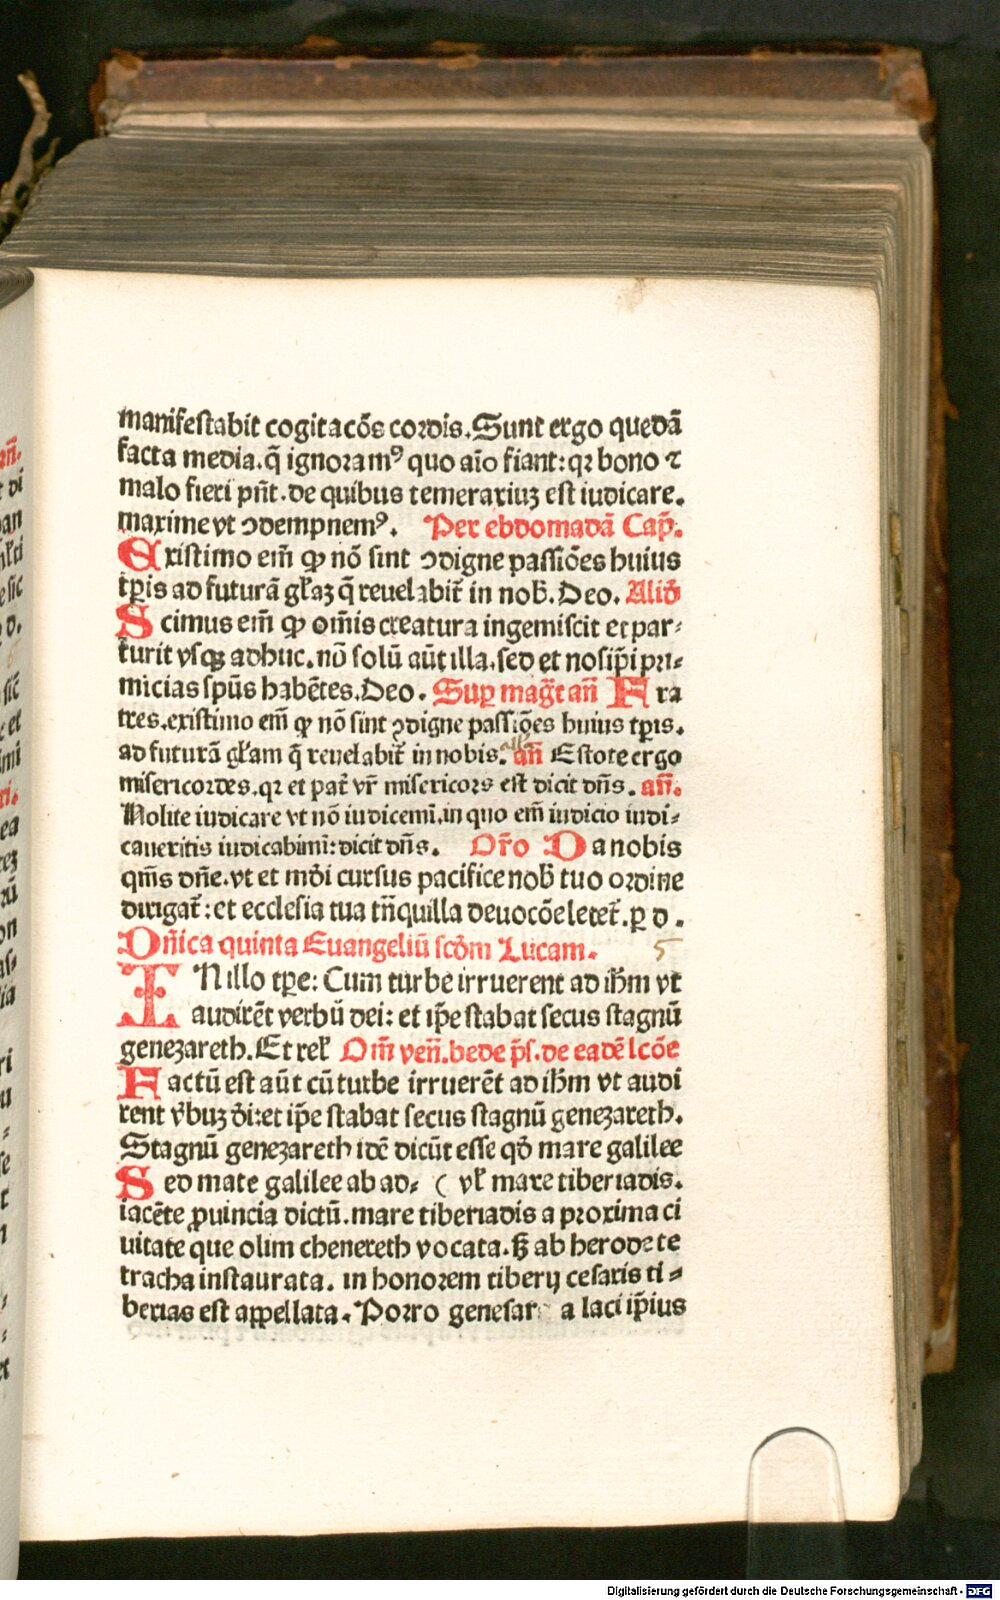 manifestabit cogitacōs cordis. Sunt ergo quedā
facta media. q̄ ignoramꝰ quo aīo fiant: qꝛ bono ⁊
malo fieri pn̄t. de quibus temerariuꝫ est iudicare.
maxime vt ↄdempnemꝰ. Per ebdomadā Cap̄.
Existimo em̄ ꝙ nō sint ↄdigne passiōes huius
tꝑis ad futurā gl̄aꝫ q̄ reuelabit̄ in nob̄. Deo. Alid̄
Scimus em̄ ꝙ om̄is creatura ingemiscit et par⸗
turit vsqꝫ adhuc. nō solū aūt illa. sed et nosip̄i pri⸗
micias sp̄us habētes. Deo. Suꝑ maḡt an̄ Fra
tres. existimo em̄ ꝙ nō sint ↄdigne passiōes huius tꝑis.
ad futurā gl̄am q̄ reuelabit̄ in nobis. an̄ Estote ergo
misericordes. qꝛ et pat̄ vr̄ misericors est dicit dn̄s. an̄.
Nolite iudicare vt nō iudicemī. in quo em̄ iudicio iudi⸗
caueritis iudicabimī: dicit dn̄s. Or̄o Da nobis
qm̄s dn̄e. vt et mdī cursus pacifice nob̄ tuo ordine
dirigat̄: et ecclesia tua tn̄quilla deuocōe letet̄. ꝑ d.
Dn̄ica quinta Euangeliū scd̄m Lucam. 5
IN illo tꝑe: Cum turbe irruerent ad ih̄m vt
audirēt verbū dei: et ip̄e stabat secus stagnū
genezareth. Et rel̄ Om̄ ven̄. bede p̄s. de eadē lcōe
Factū est aūt cū turbe irruerēt ad ih̄m vt audi
rent v̄buꝫ dī: et ip̄e stabat secus stagnū genezareth.
Stagnū genezareth idē dicūt esse qd̄ mare galilee
Sed mate galilee ab ad⸗ ( vl̄ mare tiberiadis.
iacēte ꝓuincia dictū. mare tiberiadis a proxima ci
uitate que olim chenereth vocata. sꝫ ab herode te
tracha instaurata. in honorem tiberij cesaris ti⸗
berias est appellata. Porro genesar a laci ip̄ius
Digitalisierung gefördert durch die Deutsche Forschungsgemeinschaft - DFG